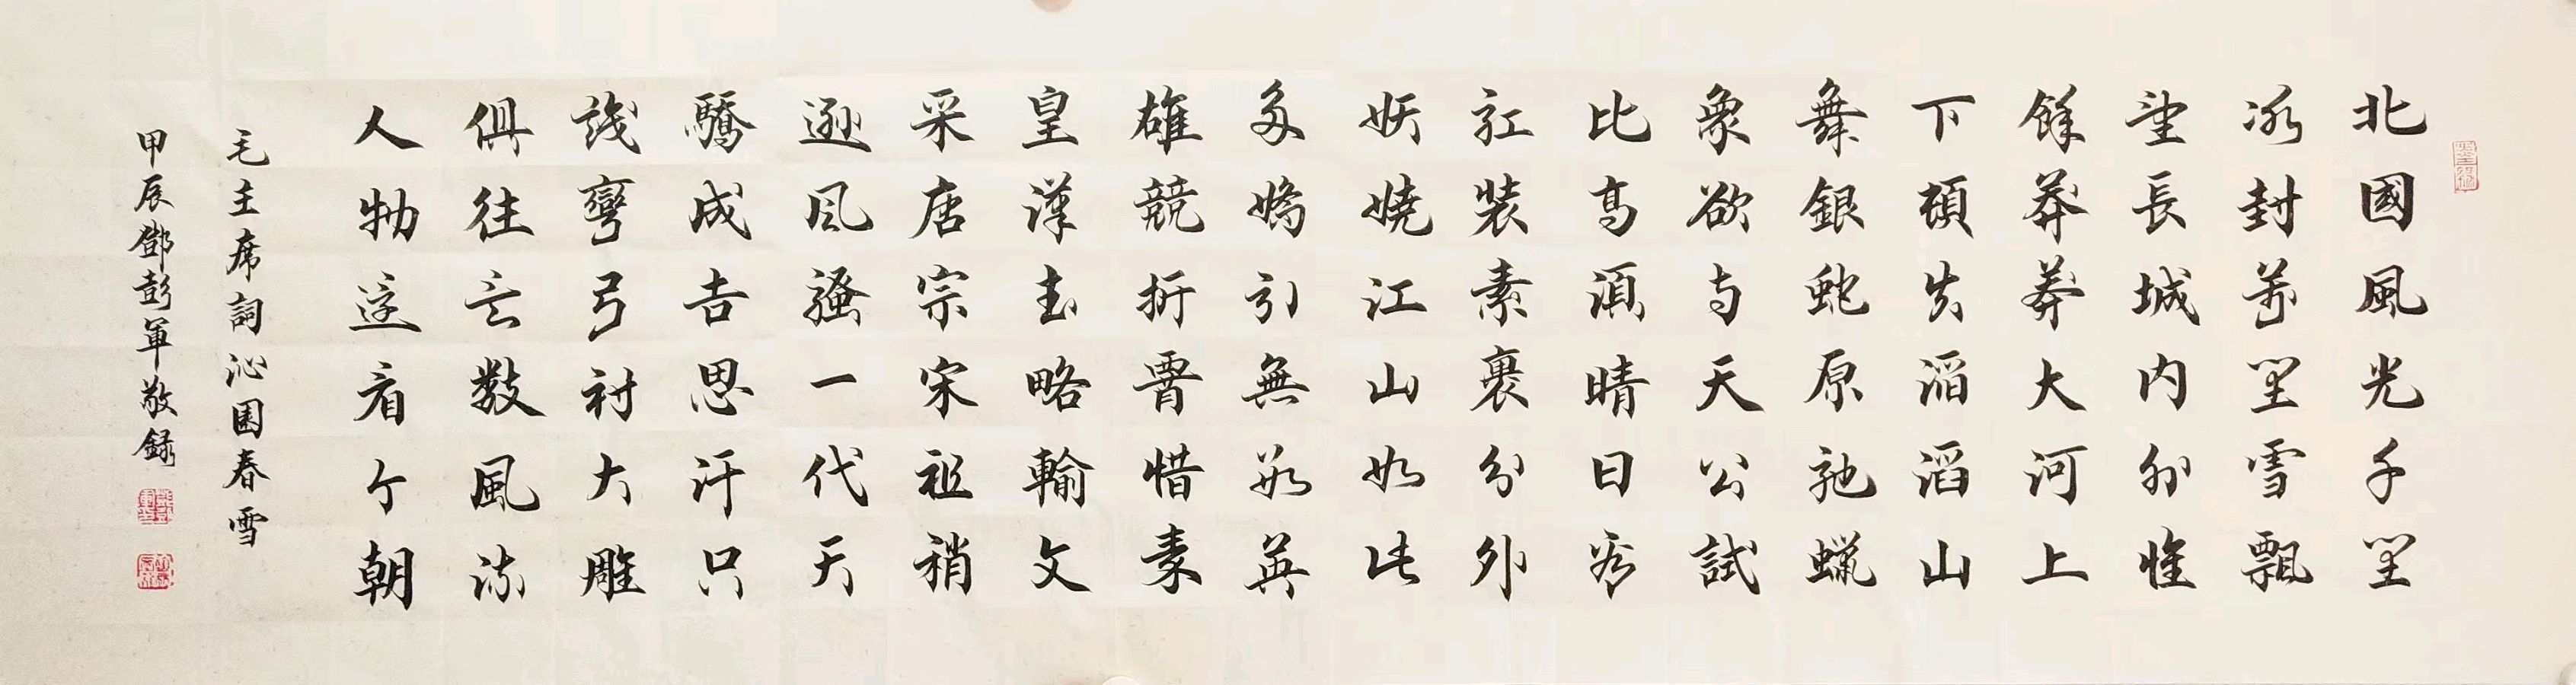 北國風光千里
冰封萬里雪飄
望長城内外惟
餘莽莽大河上
下頓失滔滔山
舞銀蛇原馳蠟
象欲与天公試
比高須晴日看
紅裝素裹分外
妖嬈江山如此
多嬌引無數英
雄競折腰惜秦
皇漢武略輸文
采唐宗宋祖稍
遜風騷一代天
驕成吉思汗只
識彎弓射大雕
俱往矣數風流
人物還看今朝
毛主席詞沁園春雪
甲辰鄧彭軍敬錄